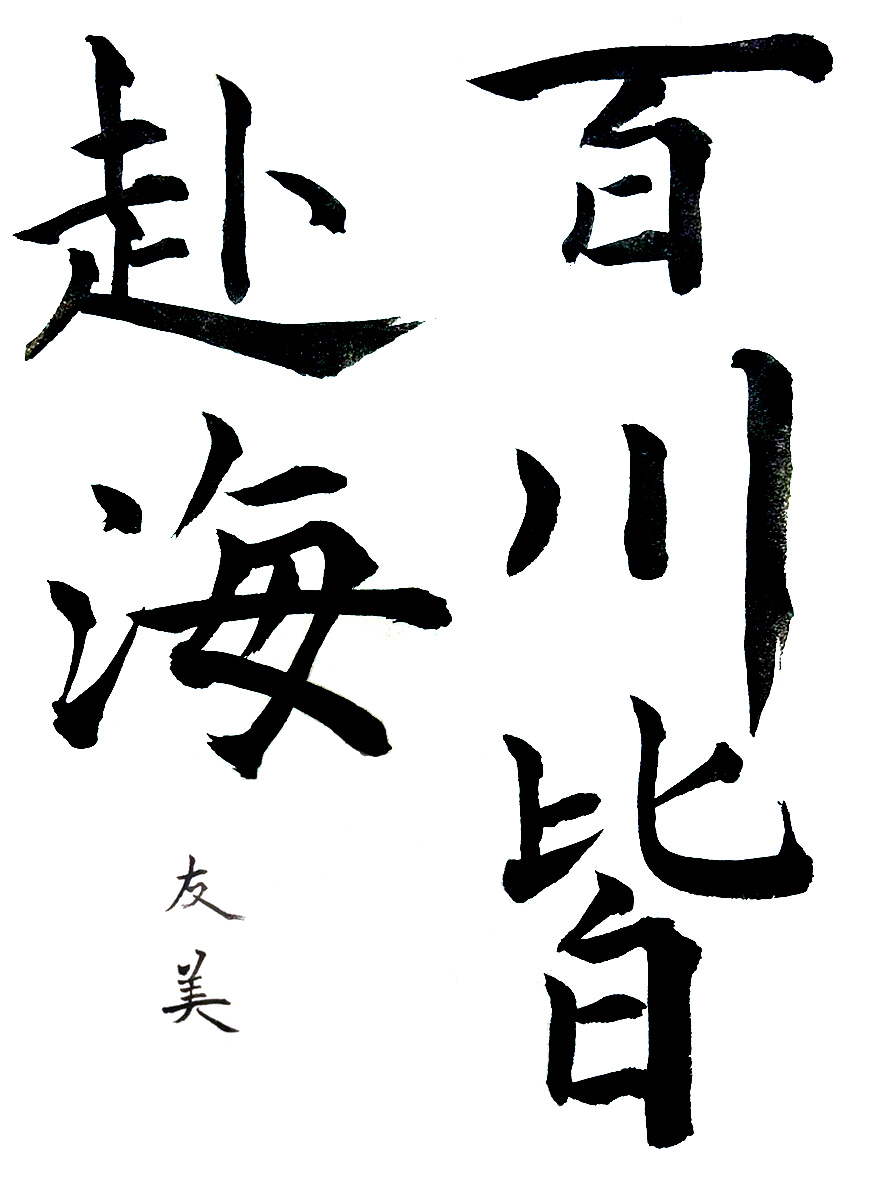 百川皆
赴海
友美